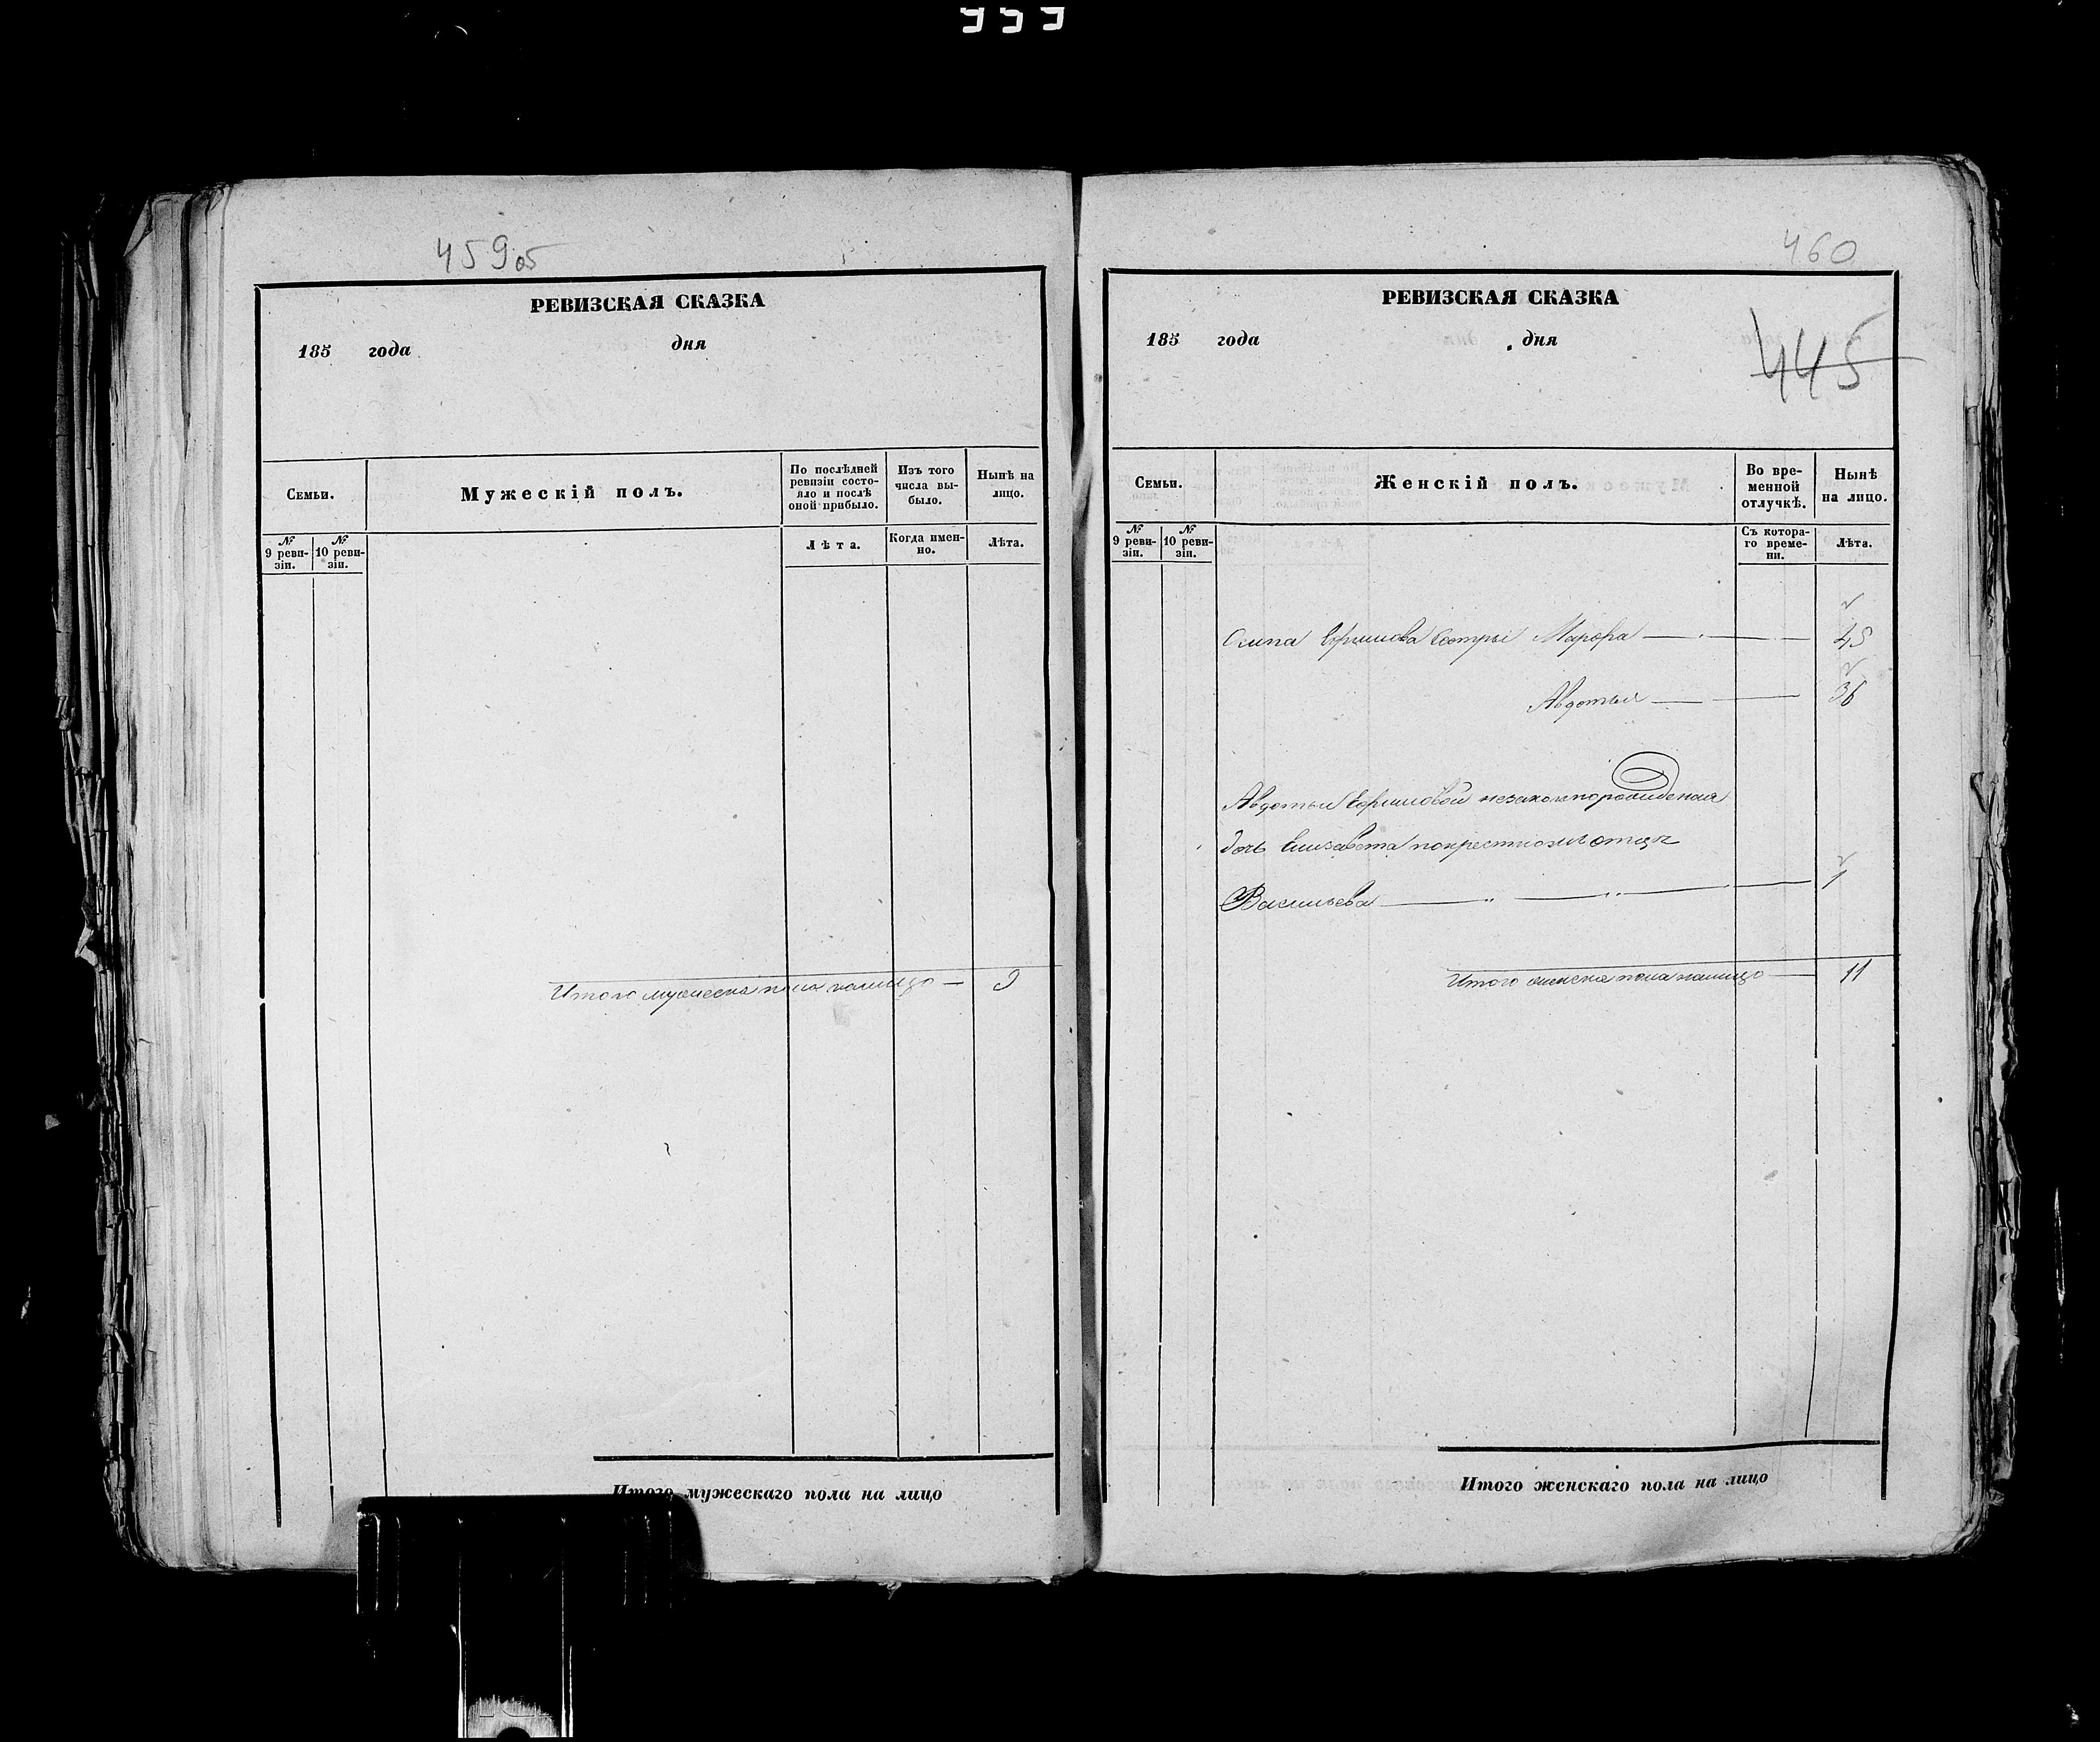 459об
РЕВИЗСКАЯ СКАЗКА
185 года дня
Семьи.
Мужескій полъ.
По послѣдней ревизіи состояло и послѣ оной прибыло.
Изъ того числа выбыло.
Нынѣ на лицо.
№ 9 ревизіи.
№ 10 ревизіи.
Лѣта.
Когда именно.
Лѣта.
Итого мужеска пола налицо — 9
Итого мужескаго пола на лицо
460
РЕВИЗСКАЯ СКАЗКА
185 года дня
445
Семьи.
Женскій полъ.
Во временной отлучкѣ.
Нынѣ на лицо.
№ 9 ревизіи.
№ 10 ревизіи.
Съ котораго времени.
Лѣта.
Осипа Ефимова сестры Марфа — 45
Авдотья — 36
Авдотьи Ефимовой незаконнорожденная
дочь Елизавета по крестному отцу
Васильева — 1
Итого женска пола налицо — 11
Итого женскаго пола на лицо